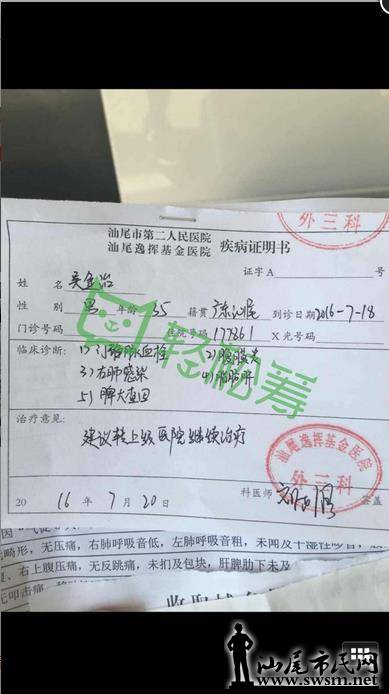 外三科
汕尾市第二人民医院
汕尾逸挥基金医院 疾病证明书
证字A 号
姓名 吴金治
性别 男 年龄 65 籍贯 广东汕尾 到诊日期2016-7-18
门诊号码 住院号码 177861 X光号码
临床诊断: 2)腹膜炎
3)右肺感染 4)脂肪肝
5)脾大查因
轻松筹
治疗意见:
建议转上级医院继续治疗
汕尾逸挥基金医院
外三科
科医师
2016年7月20日 盖
畸形，无压痛，右肺呼吸音低，左肺呼吸音粗，未闻及干湿性
、右上腹压痛，无反跳痛，未扪及包块，肝脾肋下未及
无叩击痛
汕尾市民网
www.swsm.net